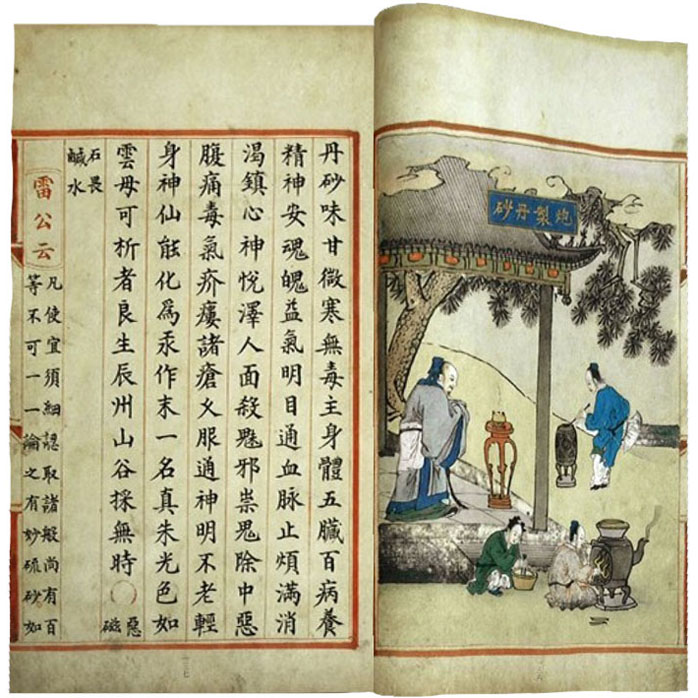 炮製丹砂
丹砂味甘微寒無毒主身體五臟百病養
精神安魂魄益氣明目通血脉止煩滿消
渴鎮心神悅澤人面殺魅邪祟鬼除中惡
腹痛毒氣疥瘻諸瘡久服通神明不老輕
身神仙能化爲汞作末一名真朱光色如
雲母可析者良生辰州山谷採無時〇惡
磁
石畏
鹹水
雷公云
凡使宜須細認取諸般尚有百
等不可一一論之有妙硫砂如